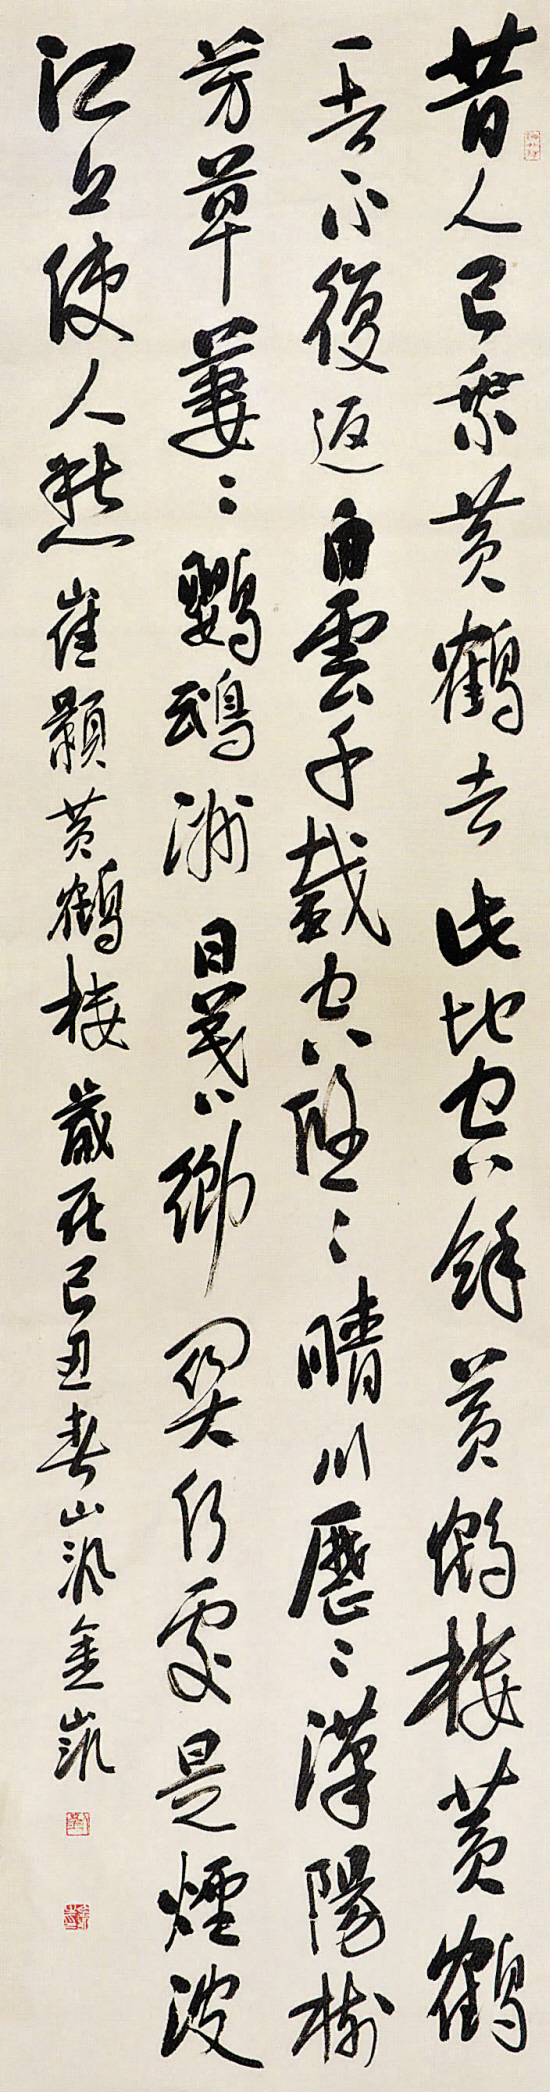 昔人已乘黄鶴去此地空餘黄鶴樓黄鶴
一去不復返白雲千載空悠々晴川歷々漢陽樹
芳草萋々鸚鵡洲日暮鄉關何處是煙波
江上使人愁 崔顥黄鶴樓 歲在己丑春山